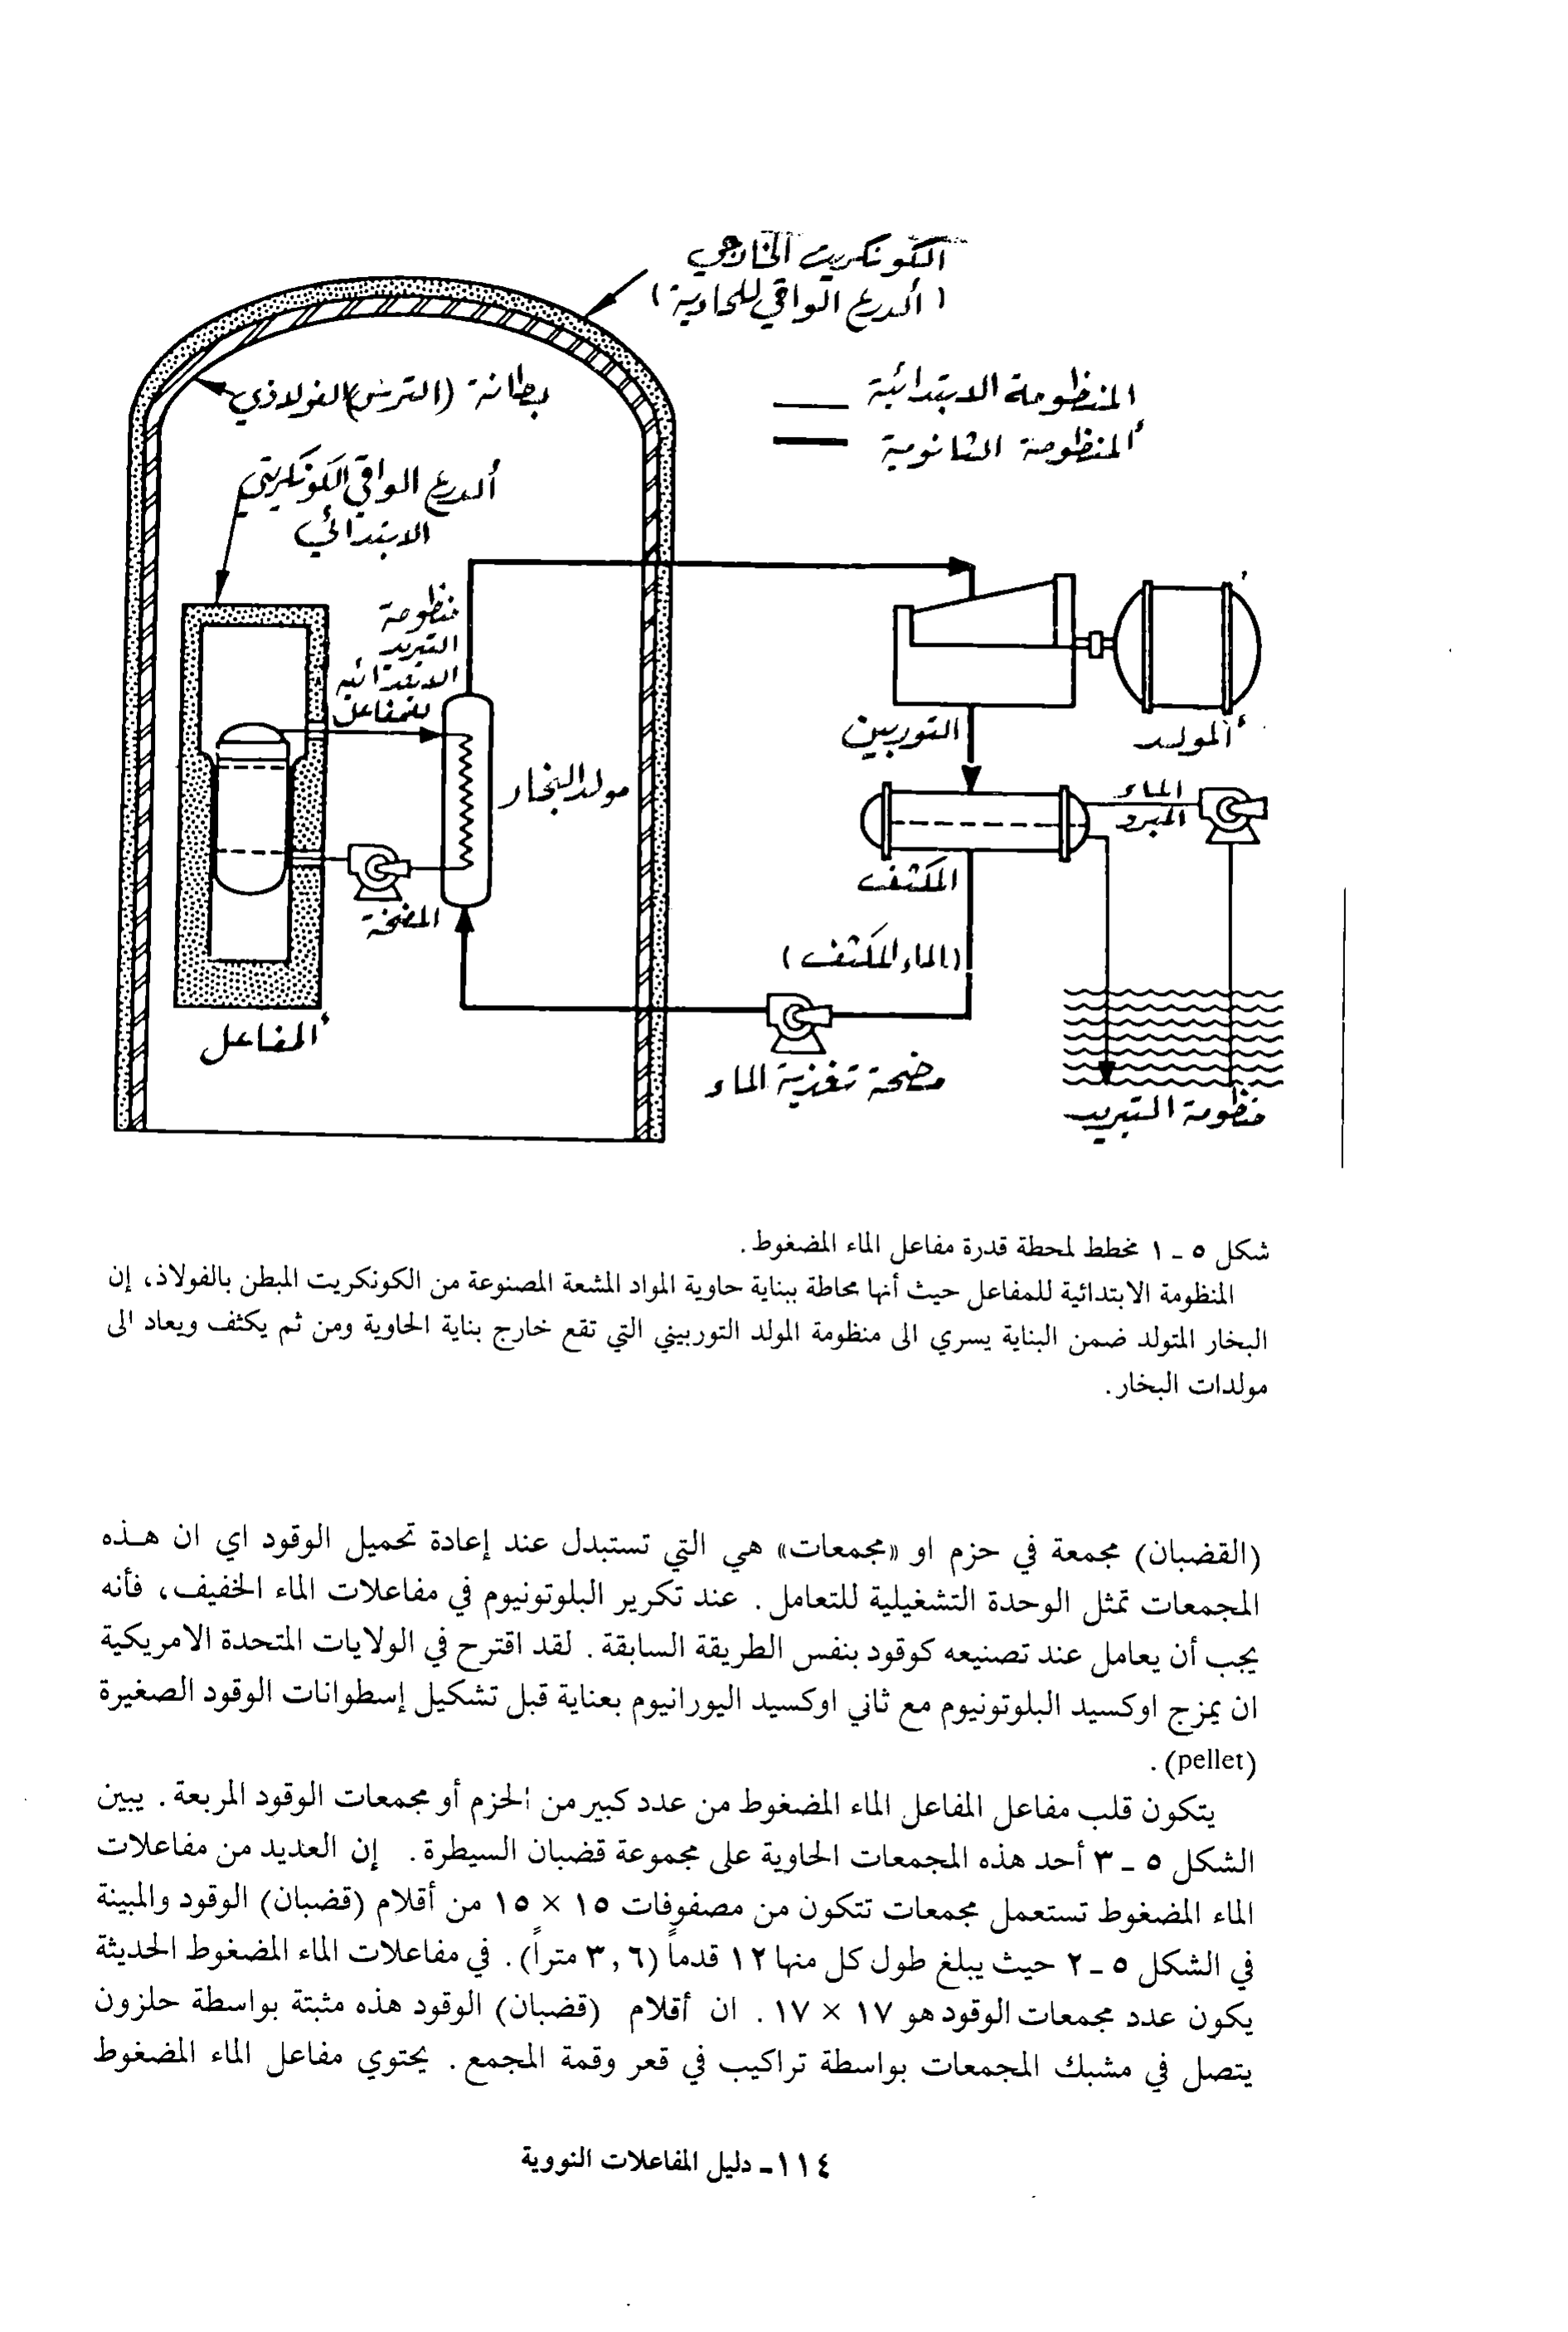 الكونكريت الخارجي
(الدرع الواقي للحاوية)
بطانة (الترس) الفولاذي
المنظومة الابتدائية
المنظومة الثانوية
الدرع الواقي الكونكريتي
الابتدائي
منظومة
التبريد
الابتدائية
للمفاعل
مولد البخار
التوربين
المولد
الماء
المبرد
المضخة
المكثف
(الماء المكثف)
المفاعل
مضخة تغذية الماء
منظومة التبريد
شكل ٥ - ١ مخطط لمحطة قدرة مفاعل الماء المضغوط.
المنظومة الابتدائية للمفاعل حيث أنها محاطة ببناية حاوية المواد المشعة المصنوعة من الكونكريت المبطن بالفولاذ، إن
البخار المتولد ضمن البناية يسري الى منظومة المولد التوربيني التي تقع خارج بناية الحاوية ومن ثم يكثف ويعاد الى
مولدات البخار.
(القضبان) مجمعة في حزم او «مجمعات» هي التي تستبدل عند إعادة تحميل الوقود اي ان هذه
المجمعات تمثل الوحدة التشغيلية للتعامل. عند تكرير البلوتونيوم في مفاعلات الماء الخفيف، فأنه
يجب أن يعامل عند تصنيعه كوقود بنفس الطريقة السابقة. لقد اقترح في الولايات المتحدة الامريكية
ان يمزج اوكسيد البلوتونيوم مع ثاني اوكسيد اليورانيوم بعناية قبل تشكيل إسطوانات الوقود الصغيرة
(pellet).
يتكون قلب مفاعل المفاعل الماء المضغوط من عدد كبير من الحزم أو مجمعات الوقود المربعة. يبين
الشكل ٥ - ٣ أحد هذه المجمعات الحاوية على مجموعة قضبان السيطرة. إن العديد من مفاعلات
الماء المضغوط تستعمل مجمعات تتكون من مصفوفات ١٥ × ١٥ من أقلام (قضبان) الوقود والمبينة
في الشكل ٥ - ٢ حيث يبلغ طول كل منها ١٢ قدماً (٣,٦ متراً). في مفاعلات الماء المضغوط الحديثة
يكون عدد مجمعات الوقود هو ١٧ × ١٧. ان أقلام (قضبان) الوقود هذه مثبتة بواسطة حلزون
يتصل في مشبك المجمعات بواسطة تراكيب في قعر وقمة المجمع. يحتوي مفاعل الماء المضغوط
١١٤ - دليل المفاعلات النووية